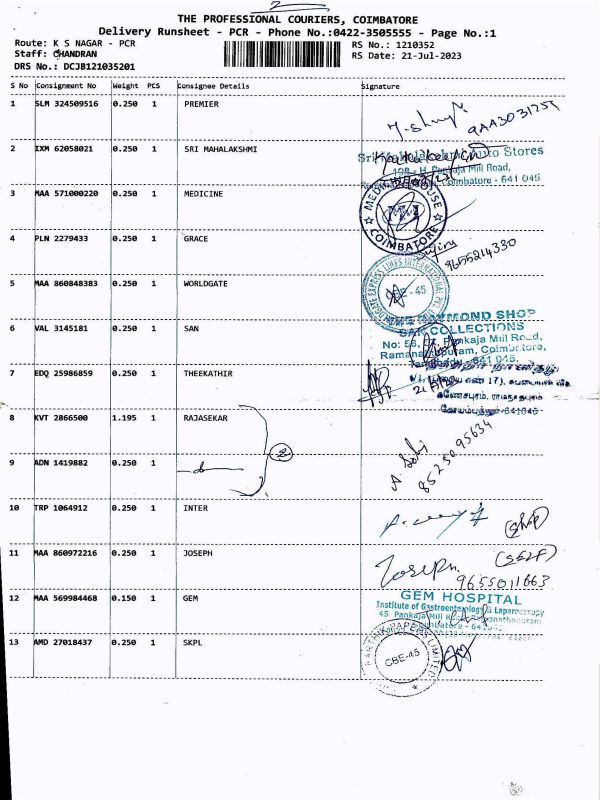 2
THE PROFESSIONAL COURIERS, COIMBATORE
Delivery Runsheet - PCR - Phone No.:0422-3505555 - Page No.:1
Route: K S NAGAR - PCR
Staff: CHANDRAN
DRS No.: DCJB121035201
RS No.: 1210352
RS Date: 21-Jul-2023
S No Consignment No Weight PCS Consignee Details Signature
1 SLM 324509516 0.250 1 PREMIER
2 IXM 62058021 0.250 1 SRI MAHALAKSHMI
Auto Stores
Pankaja Mill Road,
Coimbatore - 641 045
3 MAA 571000220 0.250 1 MEDICINE
HOUSE
COIMBATORE
4 PLN 2279433 0.250 1 GRACE
9655214330
5 MAA 860848383 0.250 1 WORLDGATE
EXPRESS LINES INTERNATIONAL
CBE-45
6 VAL 3145181 0.250 1 SAN
DIAMOND SHOP
SAN COLLECTIONS
No: 56, Pankaja Mill Road,
Ramanathapuram, Coimbatore,
641 045.
7 EDQ 25986859 0.250 1 THEEKATHIR
8 KVT 2866500 1.195 1 RAJASEKAR
2
8525095634
9 ADN 1419882 0.250 1
10 TRP 1064912 0.250 1 INTER
(shop)
11 MAA 860972216 0.250 1 JOSEPH
Joseph.
(SELF)
9655011663
12 MAA 569984468 0.150 1 GEM
GEM HOSPITAL
Institute of Gastroenterology & Laparoscopy
45, Pankaja Mill Road, Ramanathapuram
13 AMD 27018437 0.250 1 SKPL
CBE-45